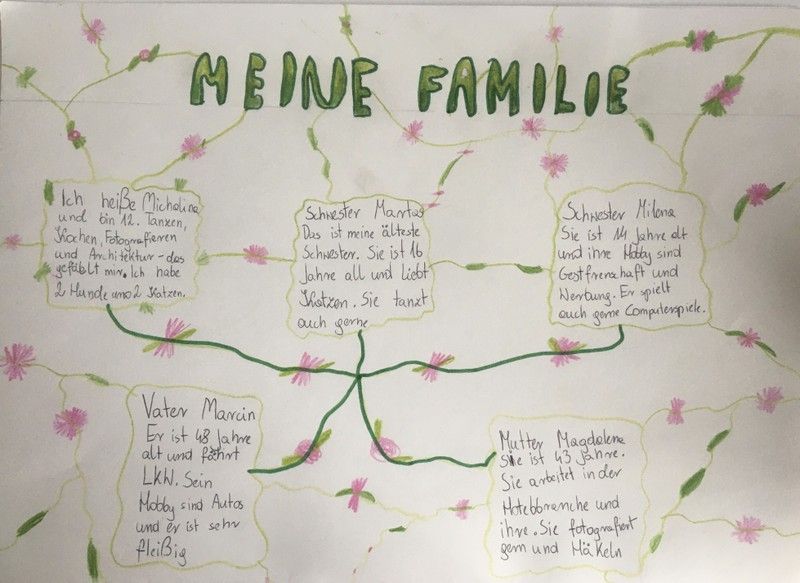 MEINE FAMILIE
Ich heiße Michalina
und bin 12. Tanzen,
Kochen, Fotografieren
und Architektur - das
gefählt mir. Ich habe
2 Hunde und 2 Katzen.
Schwester Marta
Das ist meine älteste
Schwester. Sie ist 16
Jahre all und liebt
Katzen. Sie tanzt
auch gerne
Schwester Milena
Sie ist 14 Jahre alt
und ihre Hobby sind
Gestfrenzhaft und
Werbung. Er spielt
auch gerne Computerspiele.
Vater Marcin
Er ist 48 Jahre
alt und fährt
LKW. Sein
Hobby sind Autos
und er ist sehr
fleißig
Mutter Magdalena
Sie ist 43 Jahre.
Sie arbeitet in der
Hotelbranche und
ihre. Sie fotografiert
gern und Häkeln